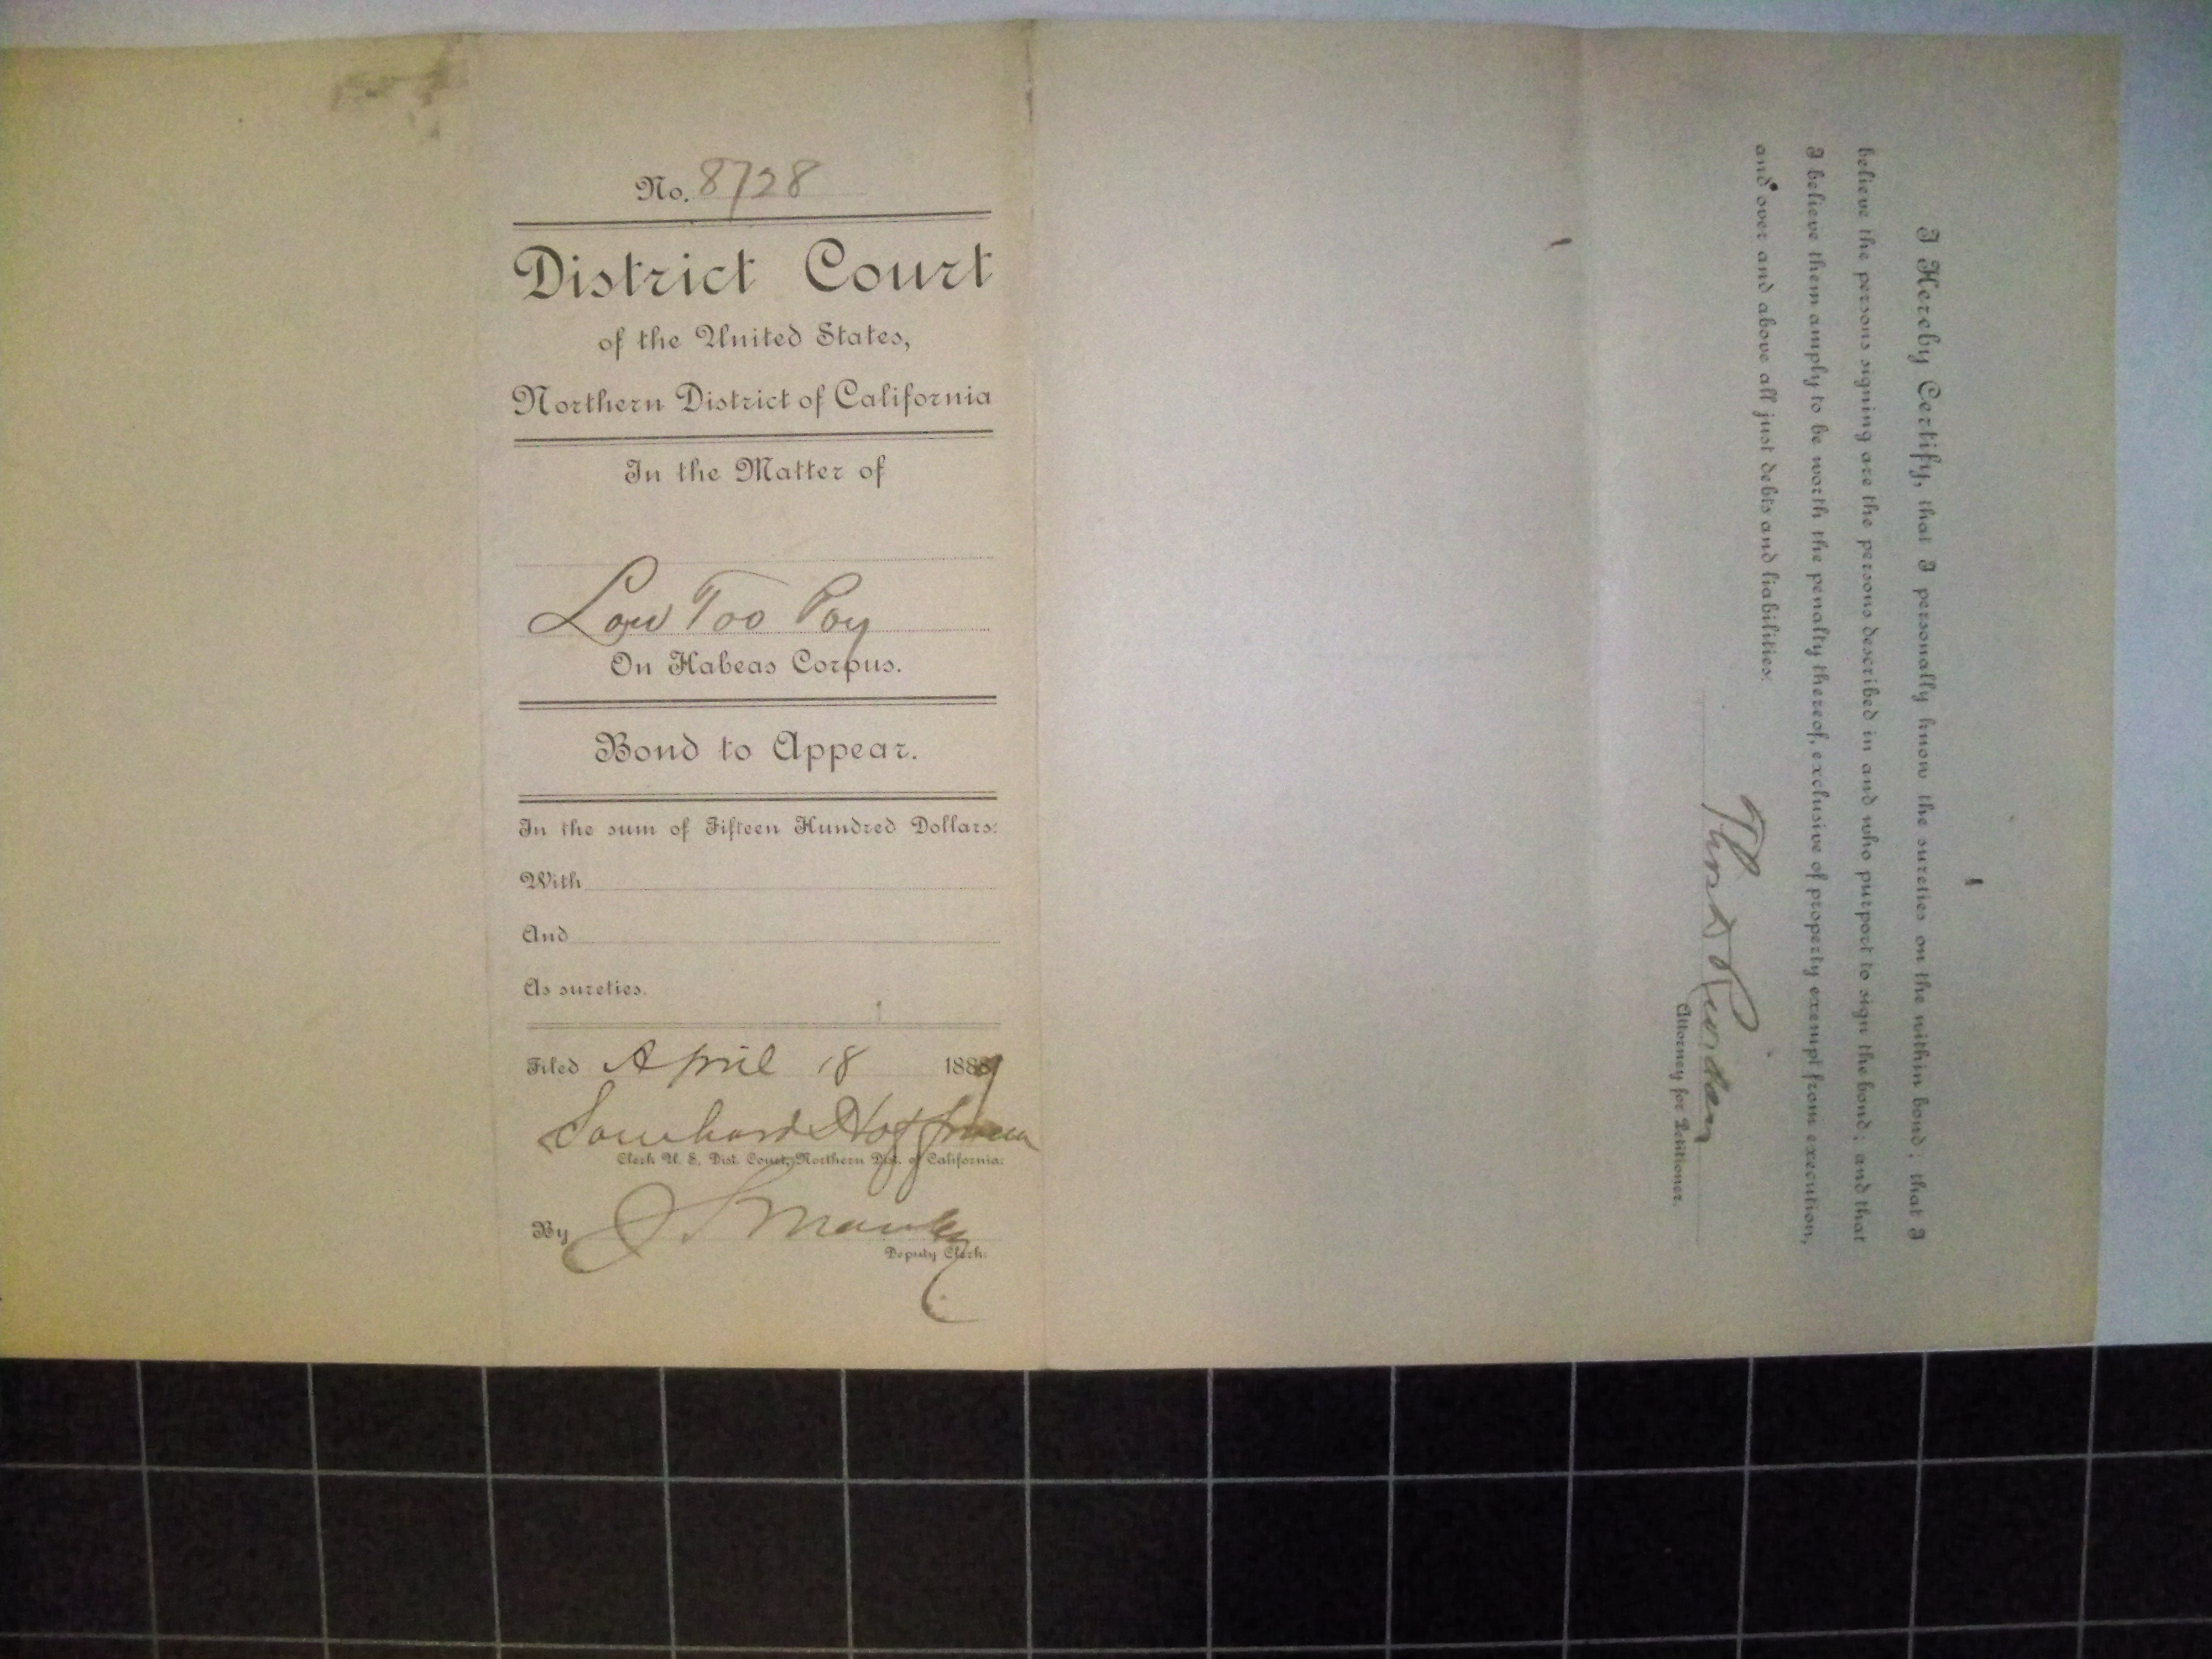 No. 8728
District Court
of the United States,
Northern District of California
In the Matter of
Low Too Poy
On Habeas Corpus.
Bond to Appear.
In the sum of Fifteen Hundred Dollars:
With
And
As sureties.
Filed April 18 1889
Southard Hoffman
Clerk U. S. Dist. Court, Northern Dist. of California.
By
Deputy Clerk.
I Hereby Certify, that I personally know the sureties on the within bond; that I
believe the persons signing are the persons described in and who purport to sign the bond; and that
I believe them amply to be worth the penalty thereof, exclusive of property exempt from execution,
and over and above all just debts and liabilities.
Thos D Riordan
Attorney for Petitioner.